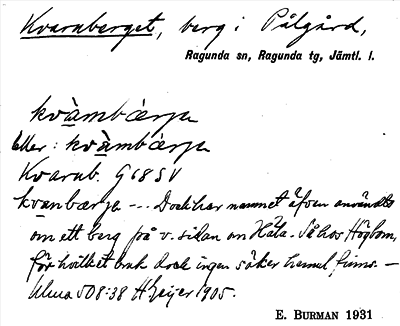 Kvarnberget, berg i Pålgård,
Ragunda sn, Ragunda tg, Jämtl. l.
kvàmbǽrjɐ
Eller: kvàmbǽrjɐ
Kvarnb. G 68 S V
kvanbærjɐ --- Dock har namnet äfven användts
om ett berg på v. sidan om Håla. Så hos Högbom,
för hvilket bruk dock ingen säker hemul finns. —
Ulma 508:38 H Geijer 1905.
E. BURMAN 1931